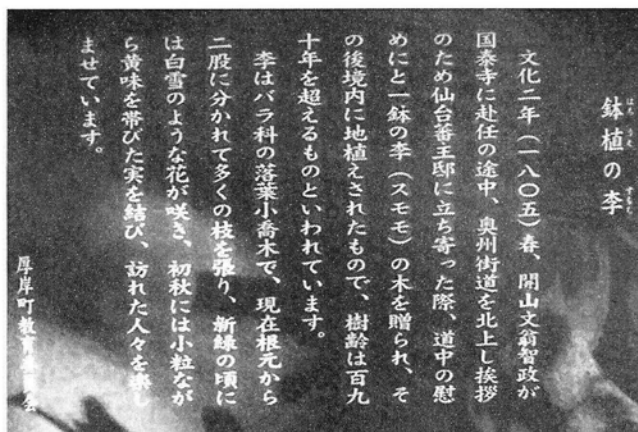 鉢植の李
文化二年（一八〇五）春、開山文翁智政が
国泰寺に赴任の途中、奥州街道を北上し挨拶
のため仙台藩主邸に立ち寄った際、道中の慰
めにと一鉢の李（スモモ）の木を贈られ、そ
の後境内に地植えされたもので、樹齢は百九
十年を超えるものといわれています。
李はバラ科の落葉小喬木で、現在根元から
二股に分かれて多くの枝を張り、新緑の頃に
は白雪のような花が咲き、初秋には小粒なが
ら黄味を帯びた実を結び、訪れた人々を楽し
ませています。
厚岸町教育委員会